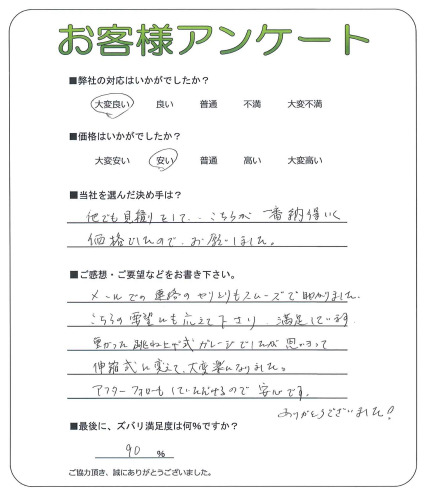 お客様アンケート
■弊社の対応はいかがでしたか？
大変良い 良い 普通 不満 大変不満
■価格はいかがでしたか？
大変安い 安い 普通 高い 大変高い
■当社を選んだ決め手は？
他でも見積りをして、こちらが一番納得いく
価格でしたので、お願いしました。
■ご感想・ご要望などをお書き下さい。
メールでの連絡のやりとりもスムーズで助かりました。
こちらの要望にも応えて下さり、満足しています
重かった跳ね上げ式ガレージでしたが思いきって
伸縮式に変えて、大変楽になりました。
アフターフォローもしていただけるので安心です。
ありがとうございました！
■最後に、ズバリ満足度は何％ですか？
90 ％
ご協力頂き、誠にありがとうございました。